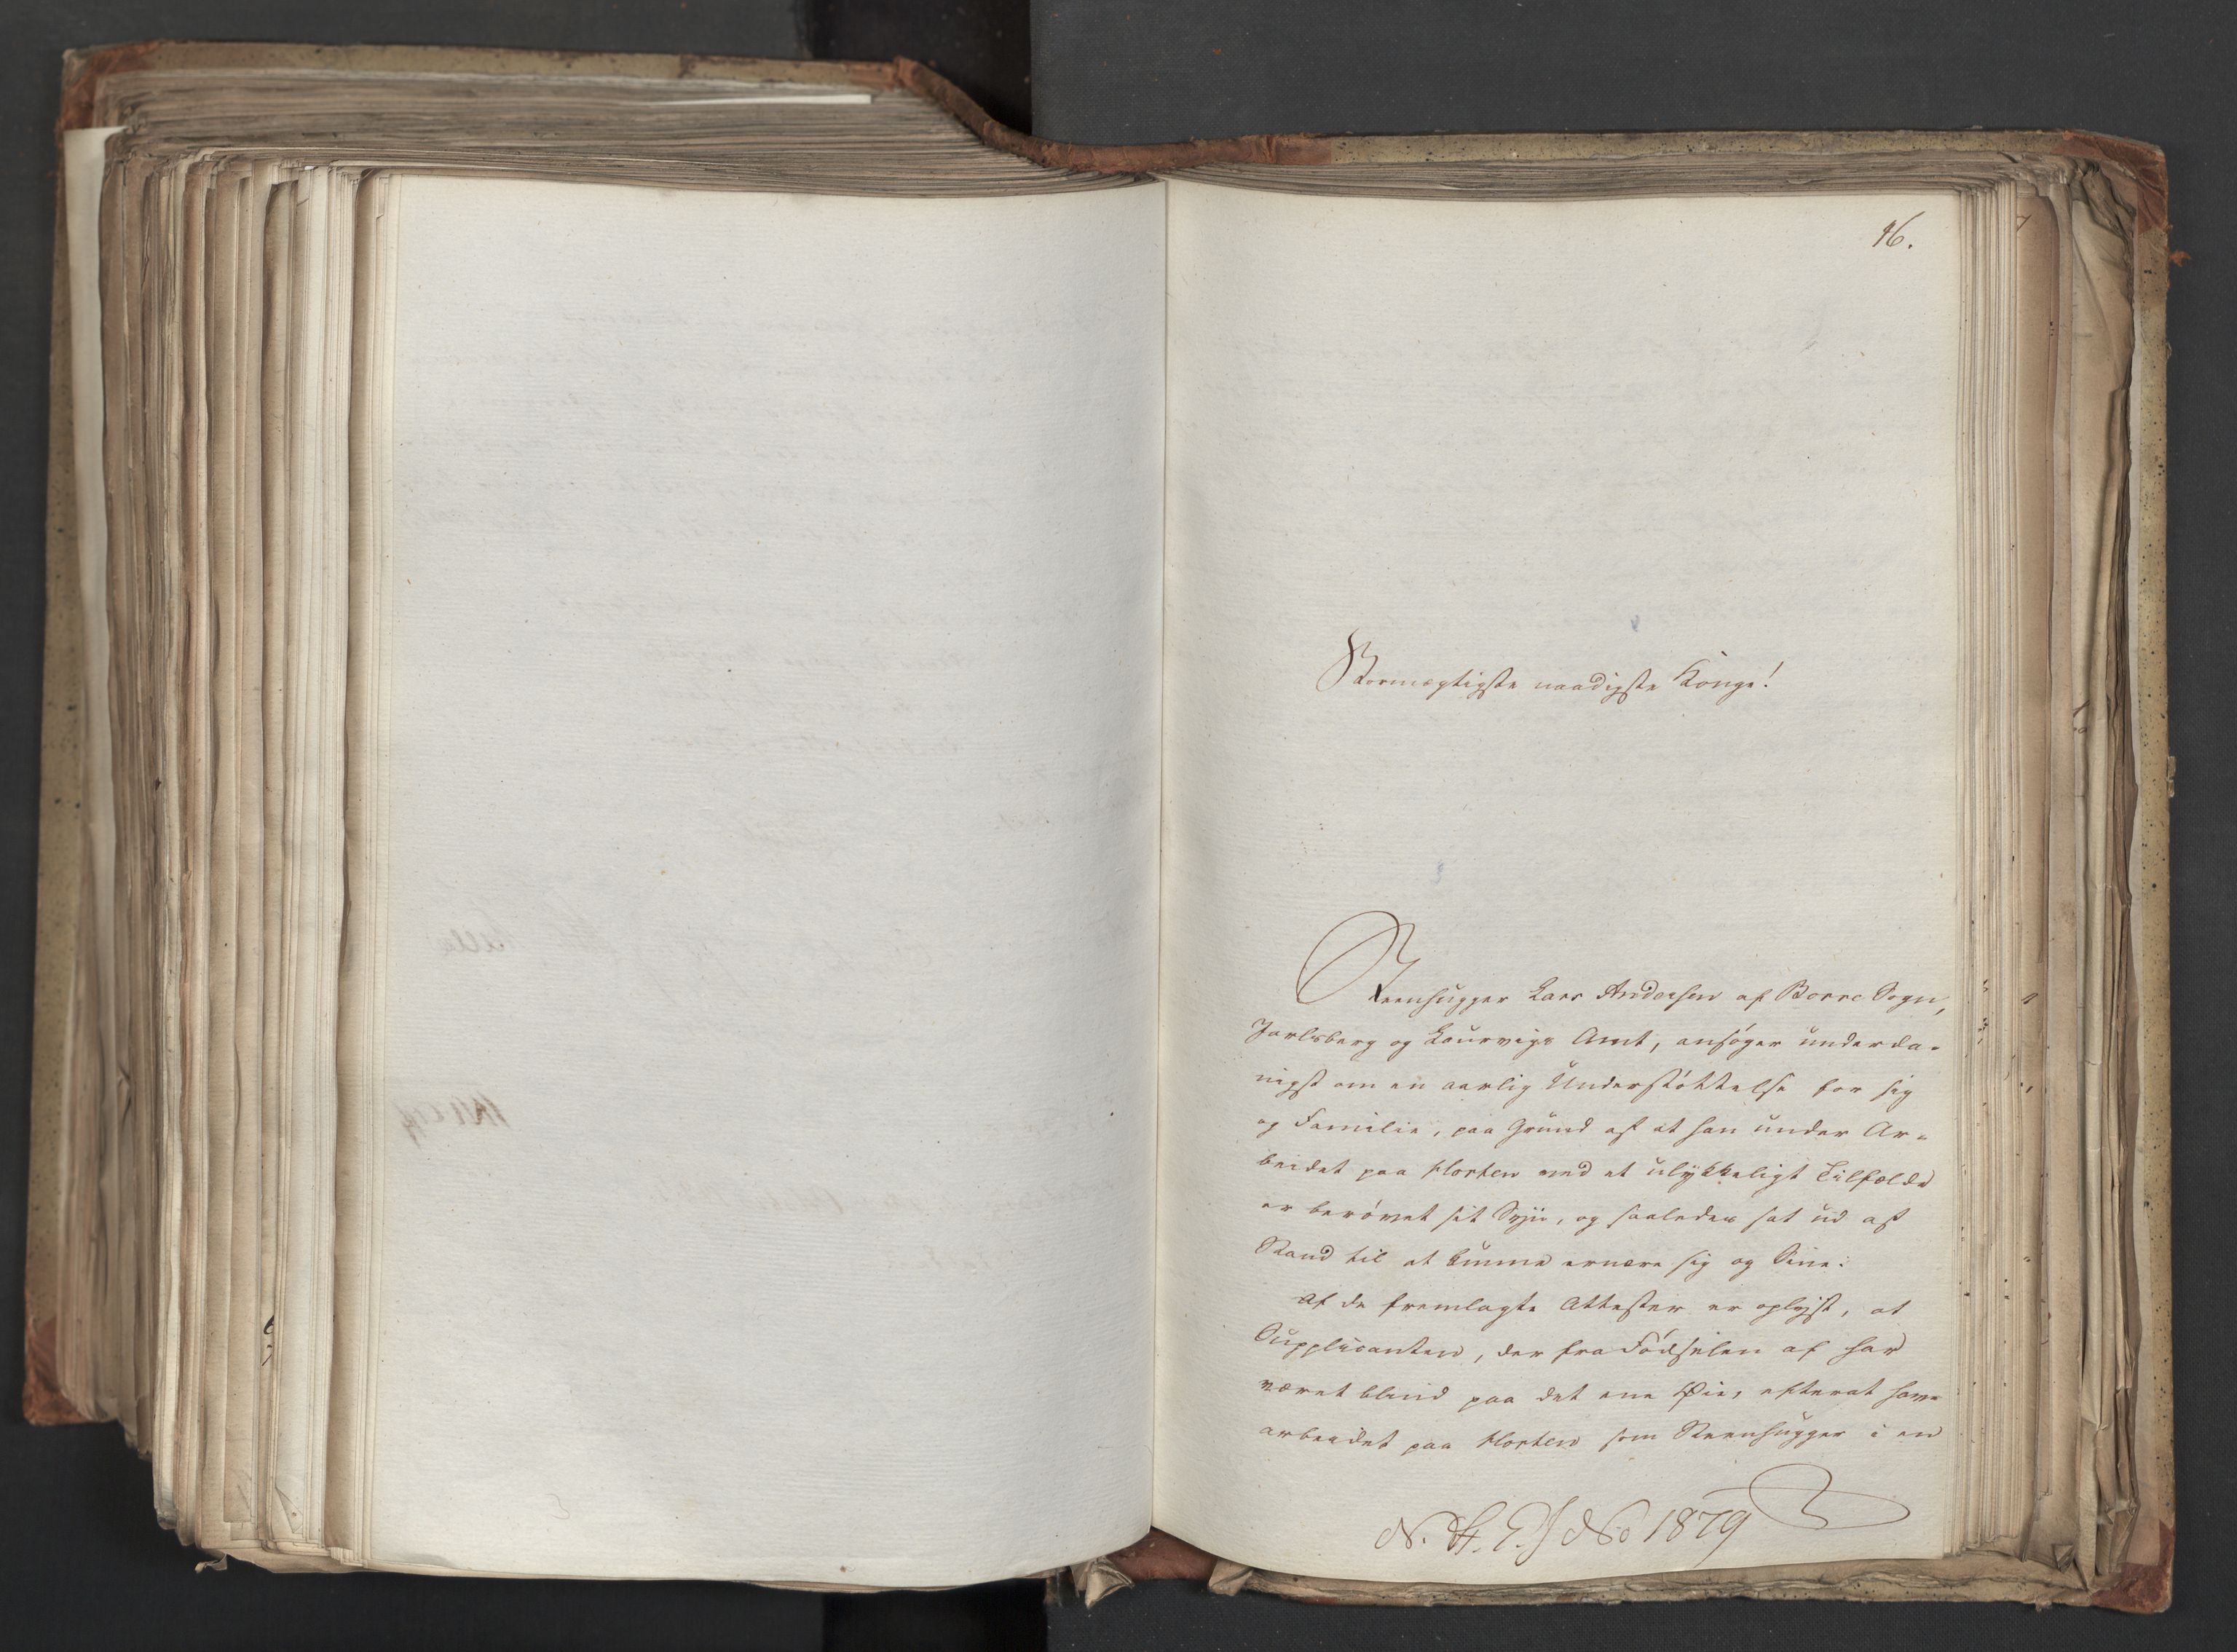 16.
Stormægtigste naadigste Konge!
Steenhugger Lars Andersen af Borre Sogn,
Jarlsberg og Laurvigs Amt, ansøger underda-
nigst om en aarlig Understøttelse for sig
og Familie, paa Grund af at han under Ar-
beidet paa Horten ved et ulykkeligt Tilfælde
er berøvet sit Syn, og saaledes sat ud af
Stand til at kunne ernære sig og Sine.
Af de fremlagte Attester er oplyst, at
Supplicanten, der fra Fødselen af har
været blind paa det ene Øie, efterat have
arbeidet paa Horten som Steenhugger i en
No 1879